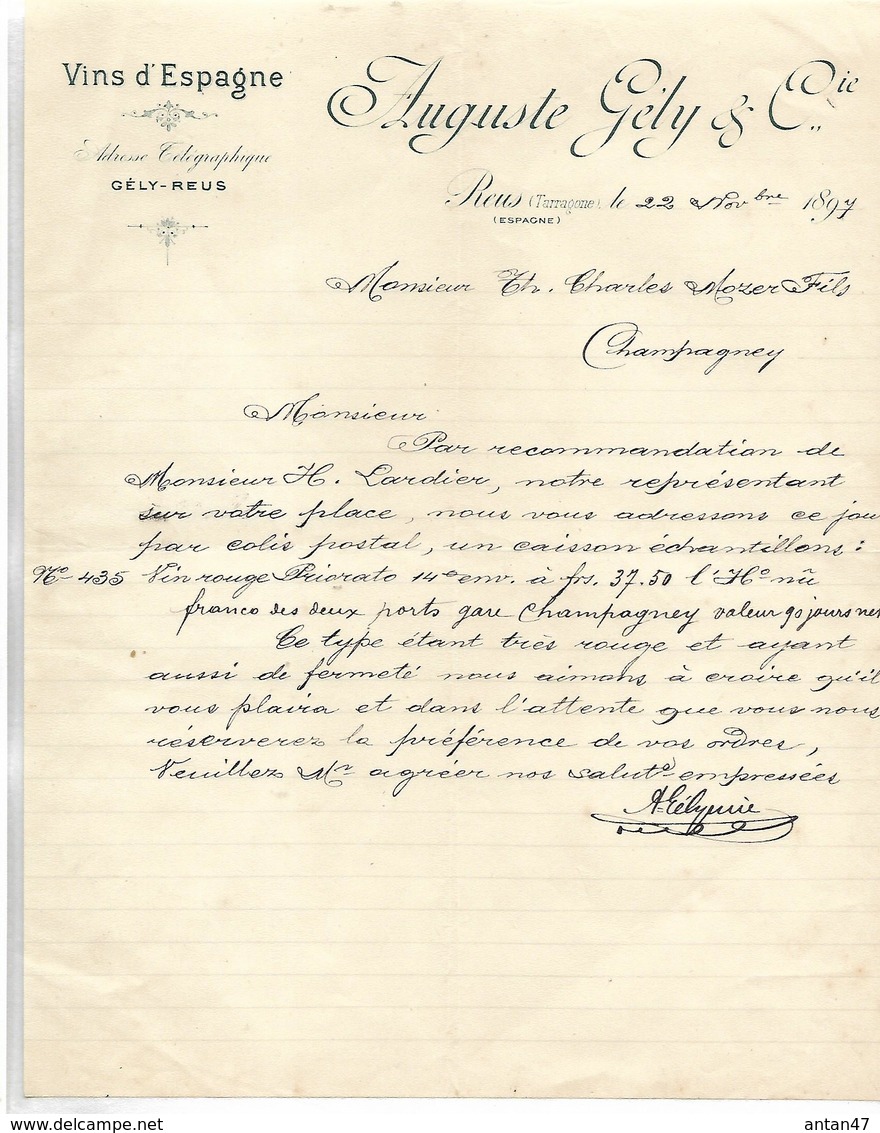 Vins d'Espagne
Adresse Télégraphique
GÉLY-REUS
Auguste Gély & Cie
Reus (Tarragone), le 22 Novbre 1897
(ESPAGNE)
Monsieur Th. Charles Mozer Fils
Champagney
Monsieur
Par recommandation de
Monsieur H. Lardier, notre représentant
sur votre place, nous vous adressons ce jou
par colis postal, un caisson échantillons :
No 435 Vin rouge Priorato 14e env. à frs. 37.50 l'Ho nû
franco des deux ports gare Champagney valeur 90 jours net
Ce type étant très rouge et ayant
aussi de fermeté nous aimons à croire qu'il
vous plaira et dans l'attente que vous nous
réserverez la préférence de vos ordres,
Veuillez Mr agréer nos saluto empressées
www.delcampe.net
antan47